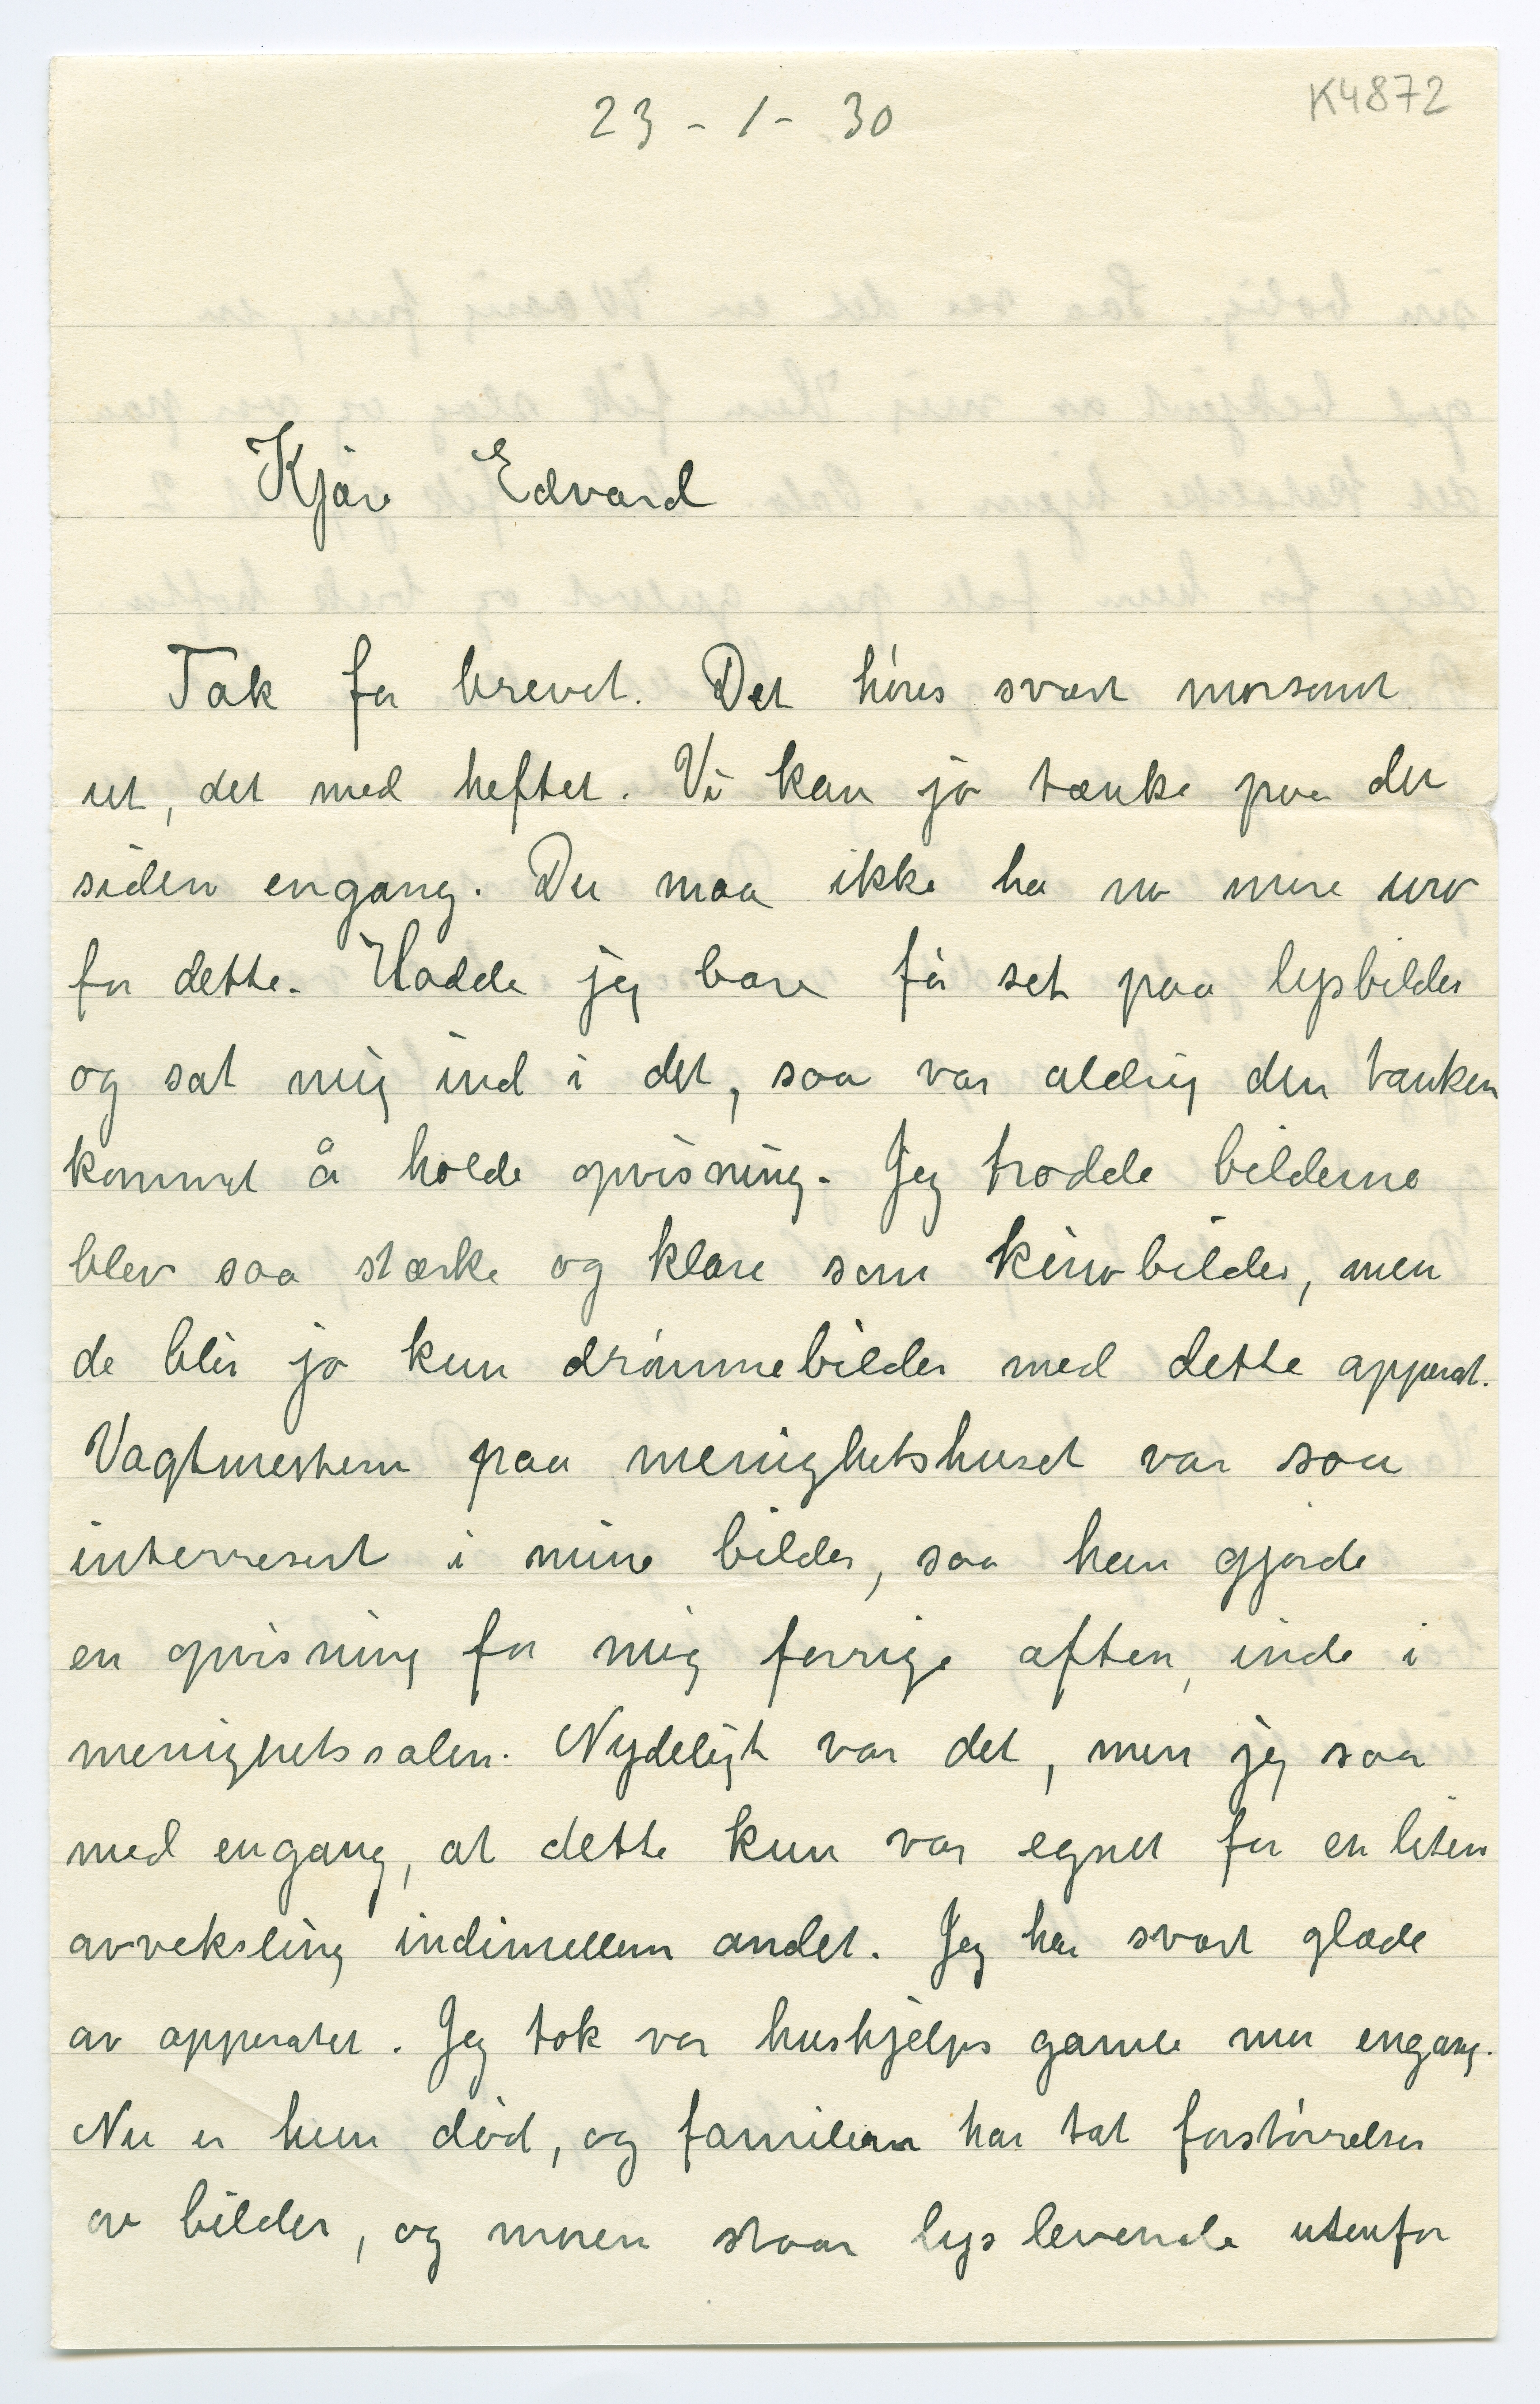 23 - 1 - 30
K4872
Kjære Edvard
Tak for brevet. Det høres svært morsomt
ut, det med heftet. Vi kan jo tænke paa det
siden engang. Du maa ikke ha no mere uro
for dette. Hadde jeg bare få set paa lysbilder
og sat mig ind i det, saa var aldrig den tanken
kommet å holde opvisning. Jeg trodde bilderne
blev saa stærke og klare som kinobilder, men
de blir jo kun drømmebilder med dette apparat.
Vagtmesteren paa menighetshuset var saa
interresert i mine bilder, saa han gjorde
en opvisning for mig forrige aften, inde i
menighetssalen. Nydeligt var det, men jeg saa
med engang, at dette kun var egnet for en liten
avveksling indimellem andet. Jeg har svært glæde
av apparatet. Jeg tok vor hushjelps gamle mor engang.
Nu er hun død, og familien har tat forstørrelser
av bilder, og moren staar lys levende utenfor